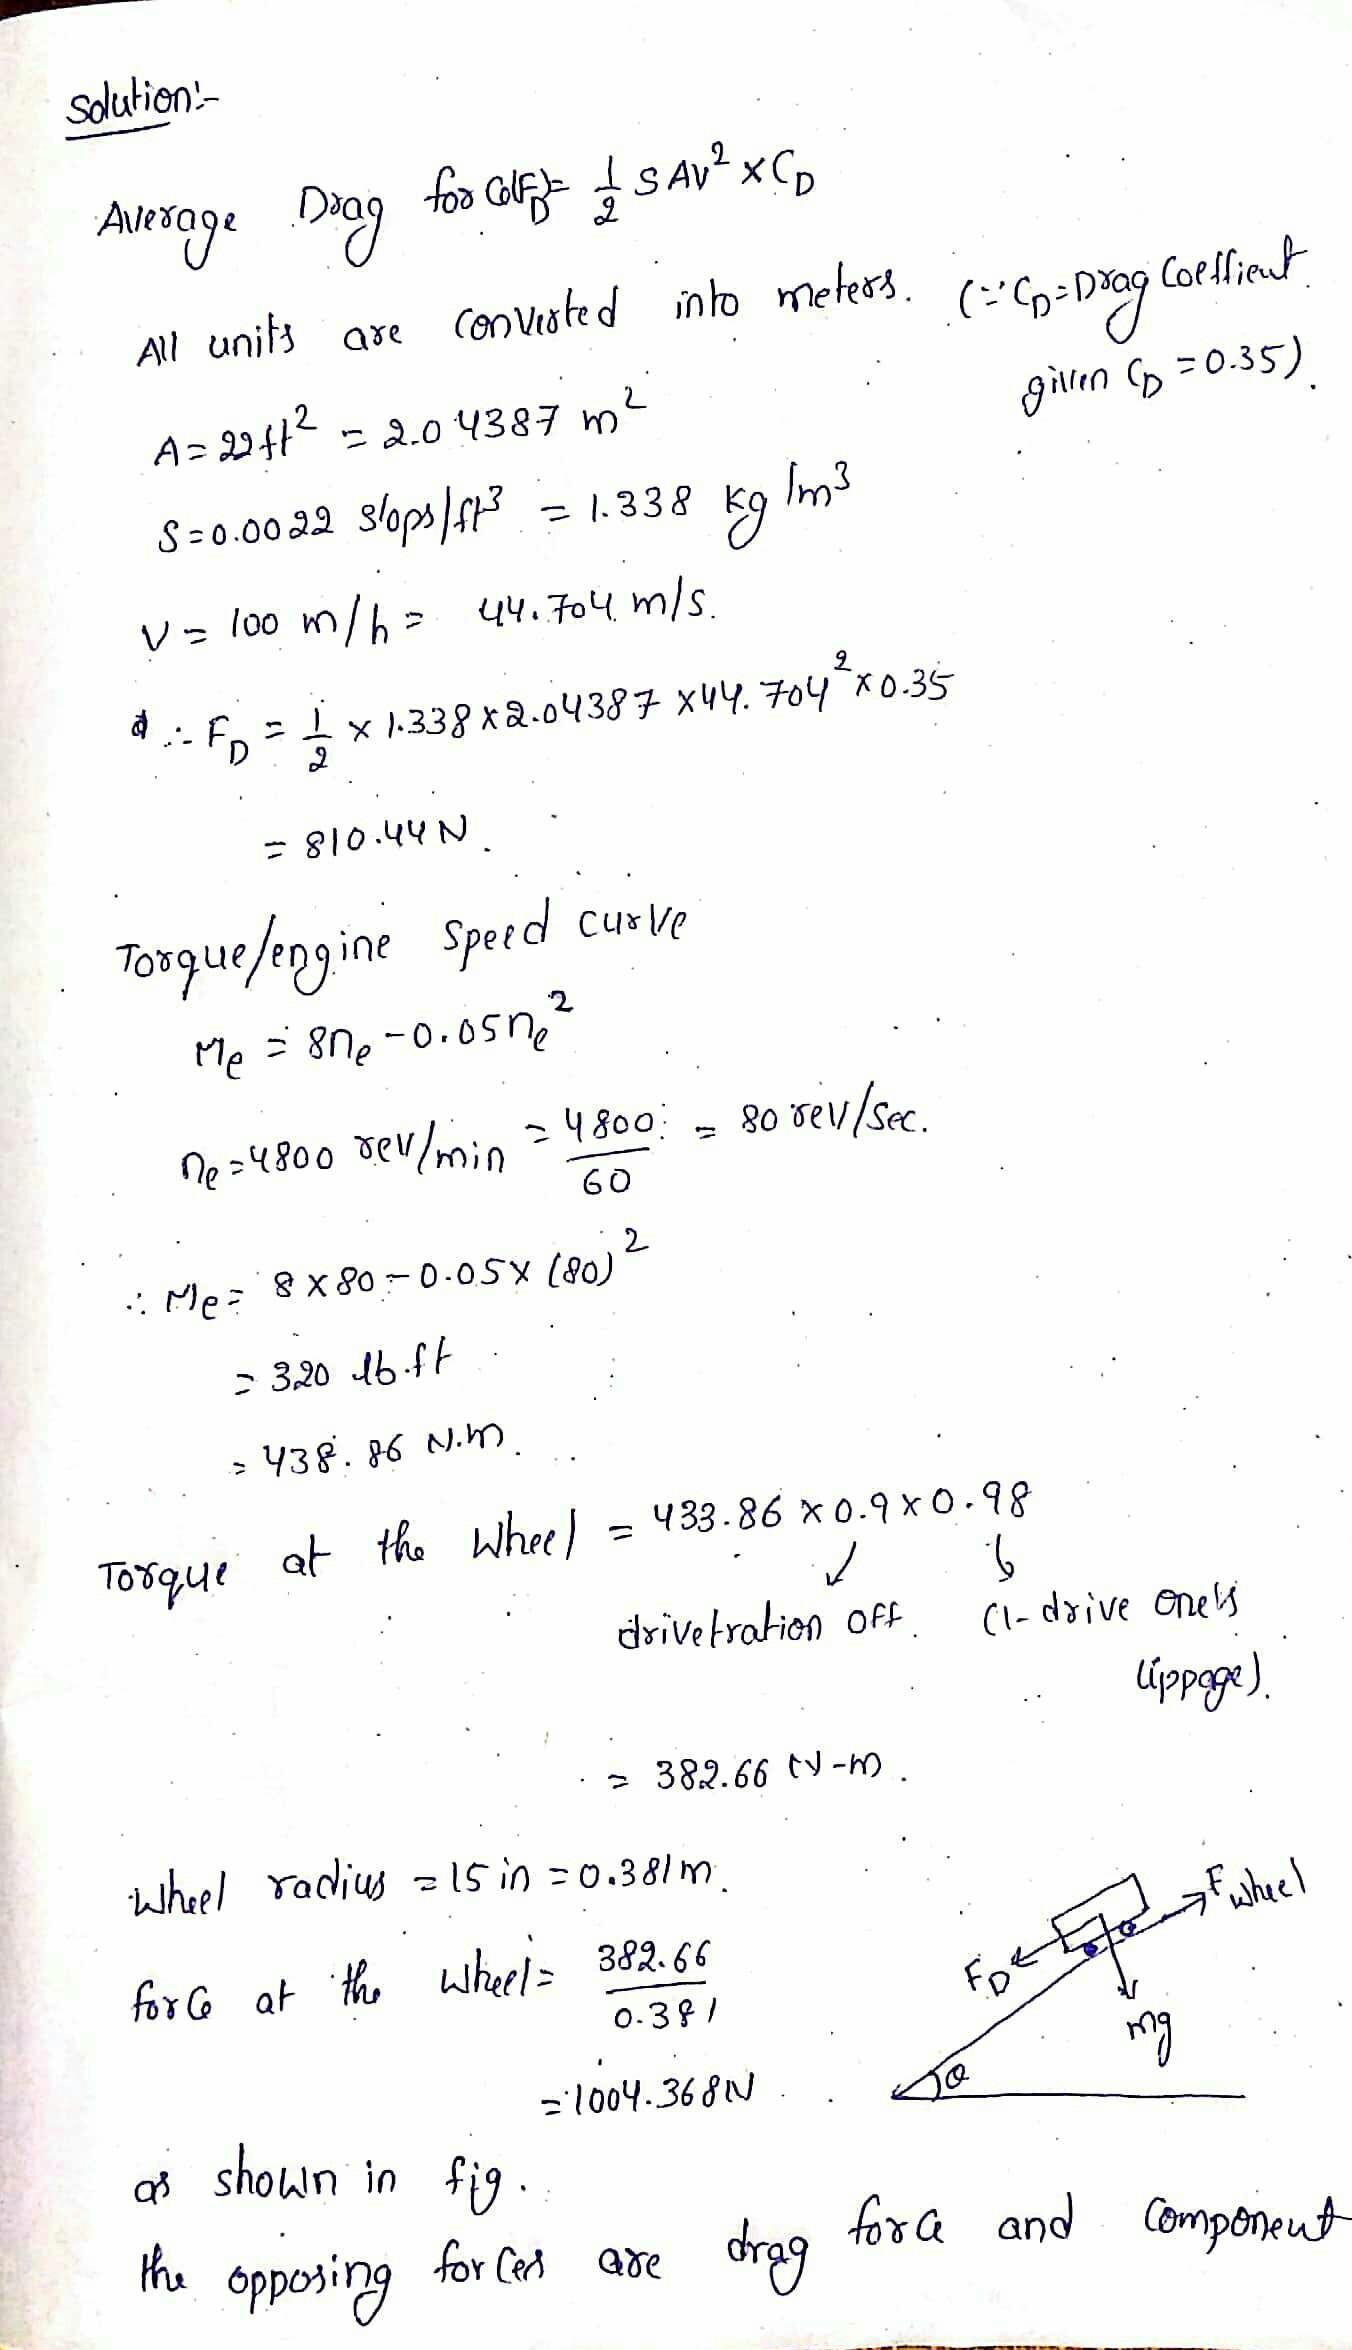 Solution:-
Average Drag force(F_D) = 1/2 S A V² × C_D
All units are converted into meters. (∵ C_D = Drag Coeffient
given C_D = 0.35).
A = 22 ft² = 2.04387 m²
S = 0.0022 slops/ft³ = 1.338 kg/m³
V = 100 m/h = 44.704 m/s.
∴ F_D = 1/2 × 1.338 × 2.04387 × 44.704² × 0.35
= 810.44 N.
Torque/engine speed curve
Me = 8ne - 0.05ne²
ne = 4800 rev/min = 4800/60 = 80 rev/sec.
∴ Me = 8 × 80 - 0.05 × (80)²
= 320 lb.ft
= 438.86 N.m.
Torque at the wheel = 433.86 × 0.9 × 0.98
drivetration off. (1- drive onels
lippage).
= 382.66 N-m.
Wheel radius = 15 in = 0.381m.
force at the wheel = 382.66/0.381
= 1004.368N
F wheel
F_D
mg
θ
as shown in fig.
the opposing forces are drag force and component